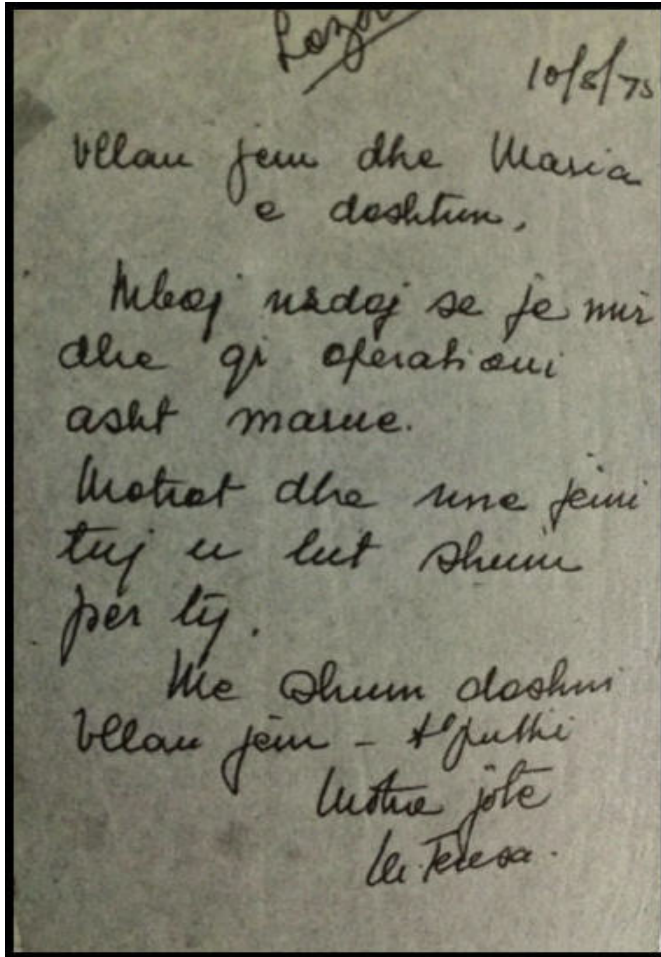 Lazar
10/8/75
Vllau jem dhe Maria
e dashtun,
Mbaj uzdaj se je mir
dhe qi operationi
asht marue.
Motrat dhe une jemi
tuj u lut shum
për tÿ.
Me shum dashni
Vllau jem -
Motra jote
M. Teresa.